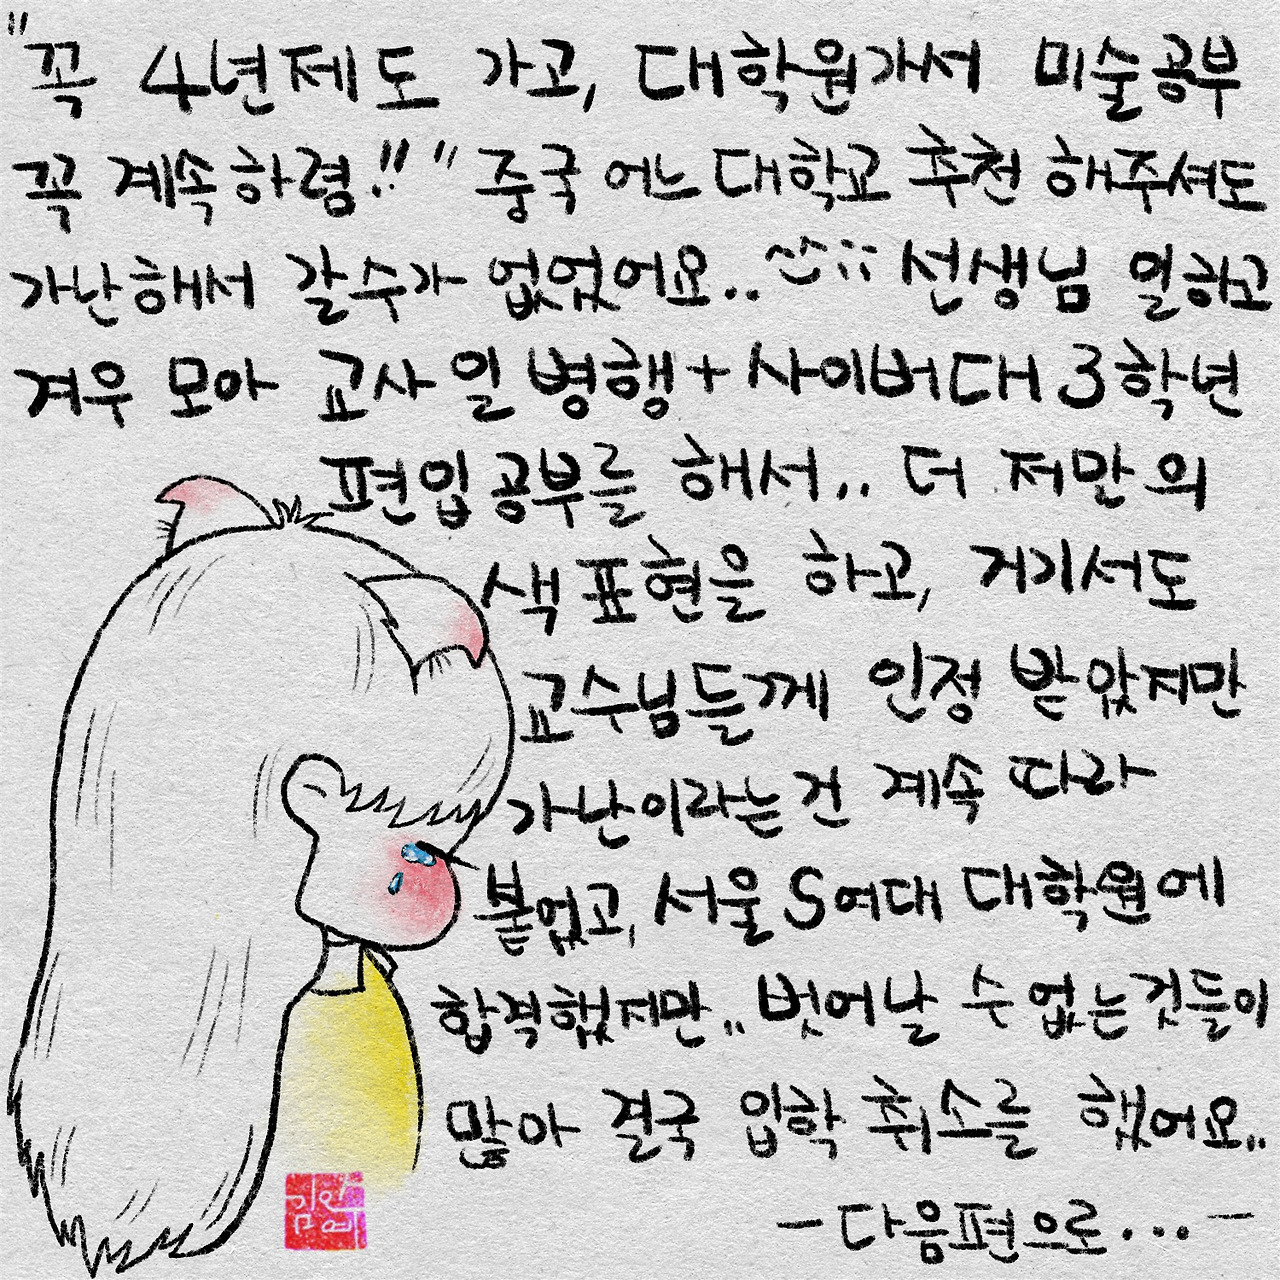 "꼭 4년제도 가고, 대학원가서 미술공부
꼭 계속하렴!!" 중국 어느 대학교 추천 해주셔도
가난해서 갈수가 없었어요.. ^^;; 선생님 일하고
겨우 모아 교사일병행+사이버대3학년
편입공부를 해서.. 더 저만의
색표현을 하고, 거기서도
교수님들께 인정 받았지만
가난이라는건 계속 따라
붙었고, 서울S여대 대학원에
합격했지만.. 벗어날 수 없는것들이
많아 결국 입학 취소를 했어요..
-다음편으로...-